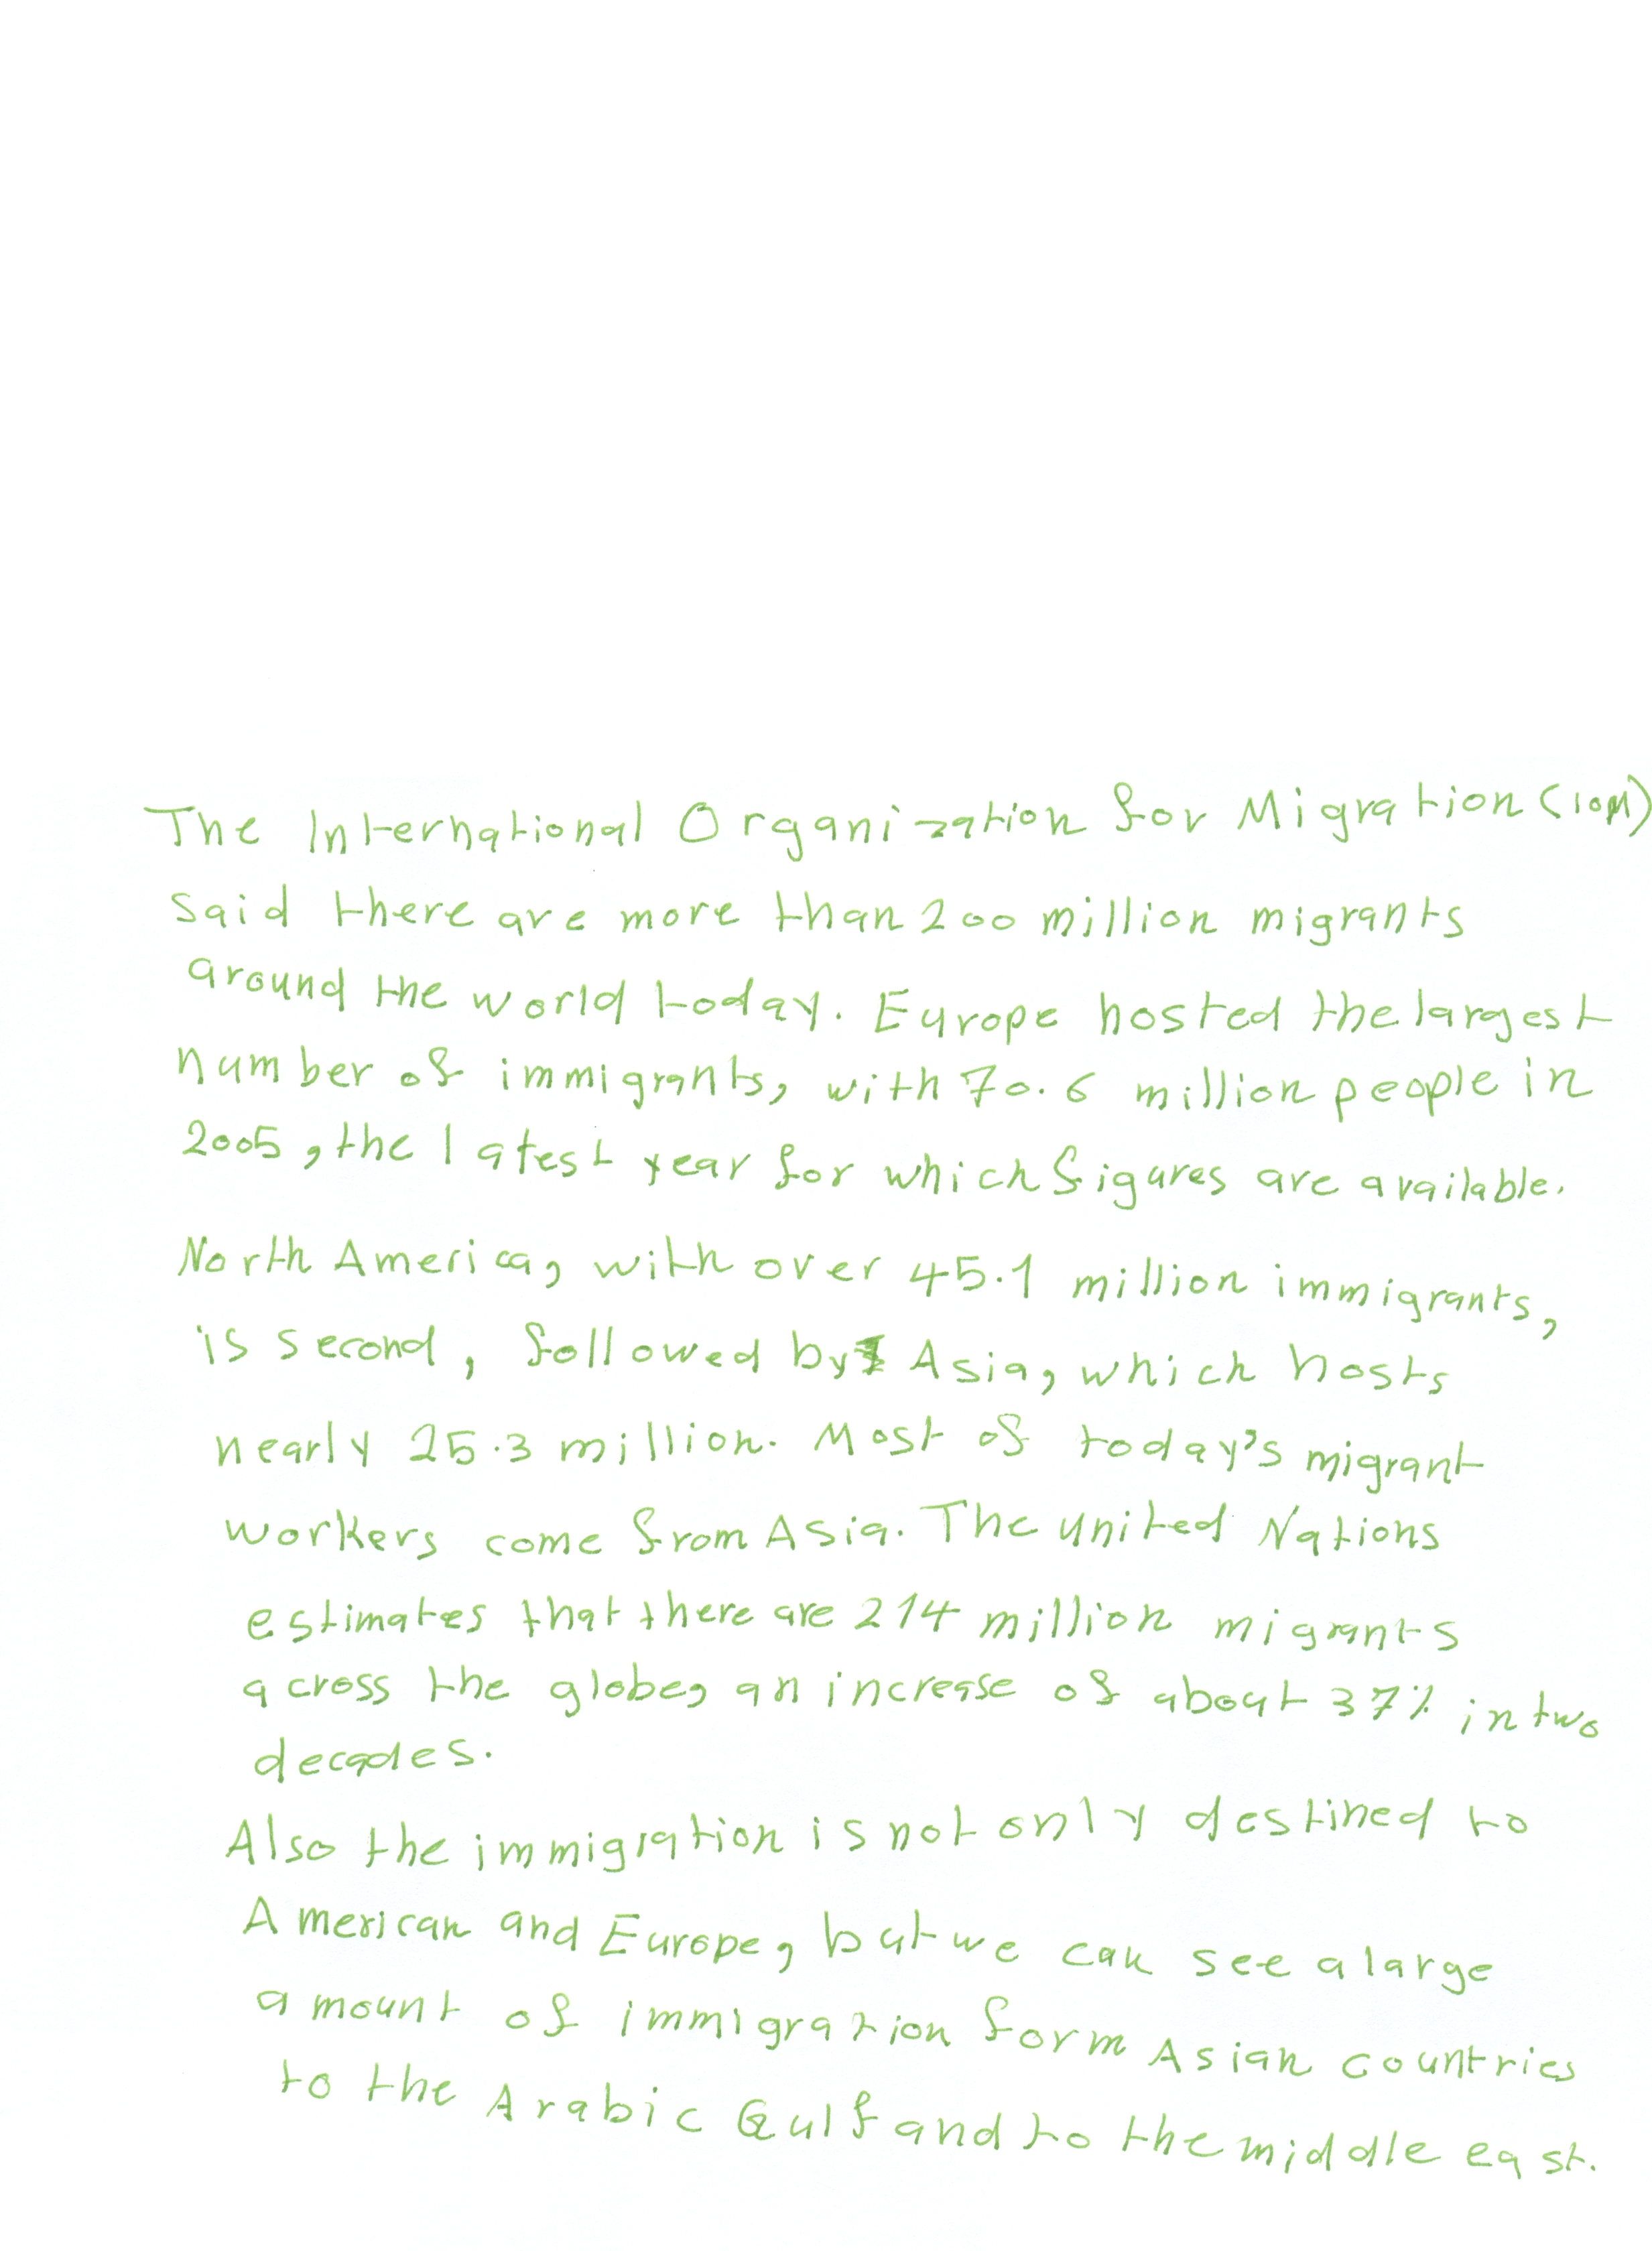 The International Organization for Migration (IOM)
said there are more than 200 million migrants
around the world today. Europe hosted the largest
number of immigrants, with 70.6 million people in
2005, the latest year for which figures are available.
North America, with over 45.1 million immigrants,
is second, followed by Asia, which hosts
nearly 25.3 million. Most of today's migrant
workers come from Asia. The united Nations
estimates that there are 214 million migrants
across the globe, an increase of about 37% in two
decades.
Also the immigration is not only destined to
American and Europe, but we can see a large
amount of immigration form Asian countries
to the Arabic Gulf and to the middle east.